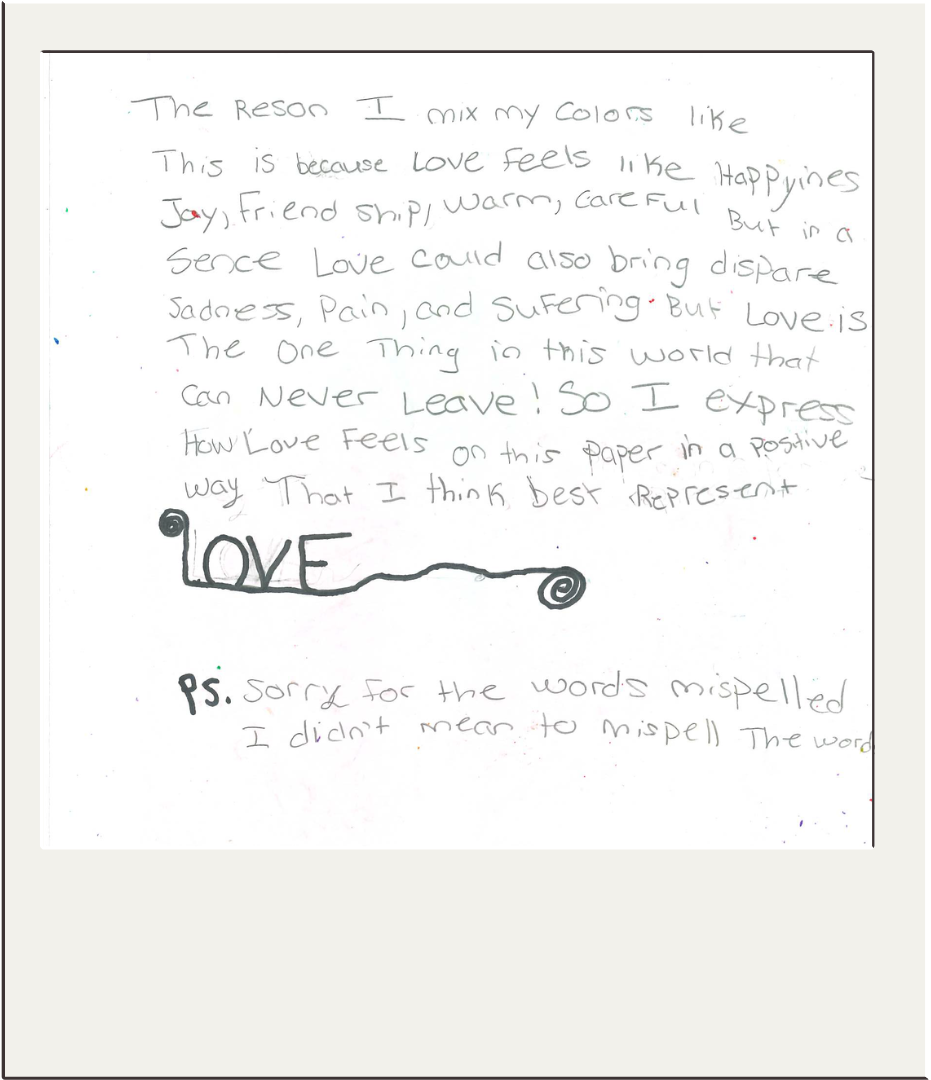 The Reson I mix my Colors like
This is because Love Feels like Happyines
Joy, Friend ship, Warm, CareFul But in a
Sence Love Could also bring dispare
Sadness, Pain, and Sufering. But Love is
The One Thing in this world that
Can Never Leave! So I express
How Love Feels on this paper in a Postive
way That I think best Represent
LOVE
PS. Sorry for the words mispelled
I didn't mean to mispell The word